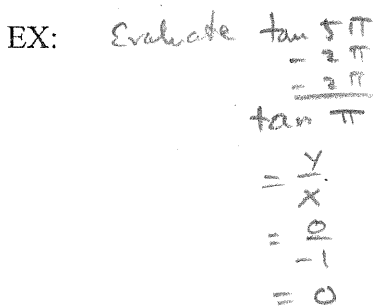 EX: Evaluate tan 5π
- 2π
- 2π
tan π
= y/x
= 0/-1
= 0